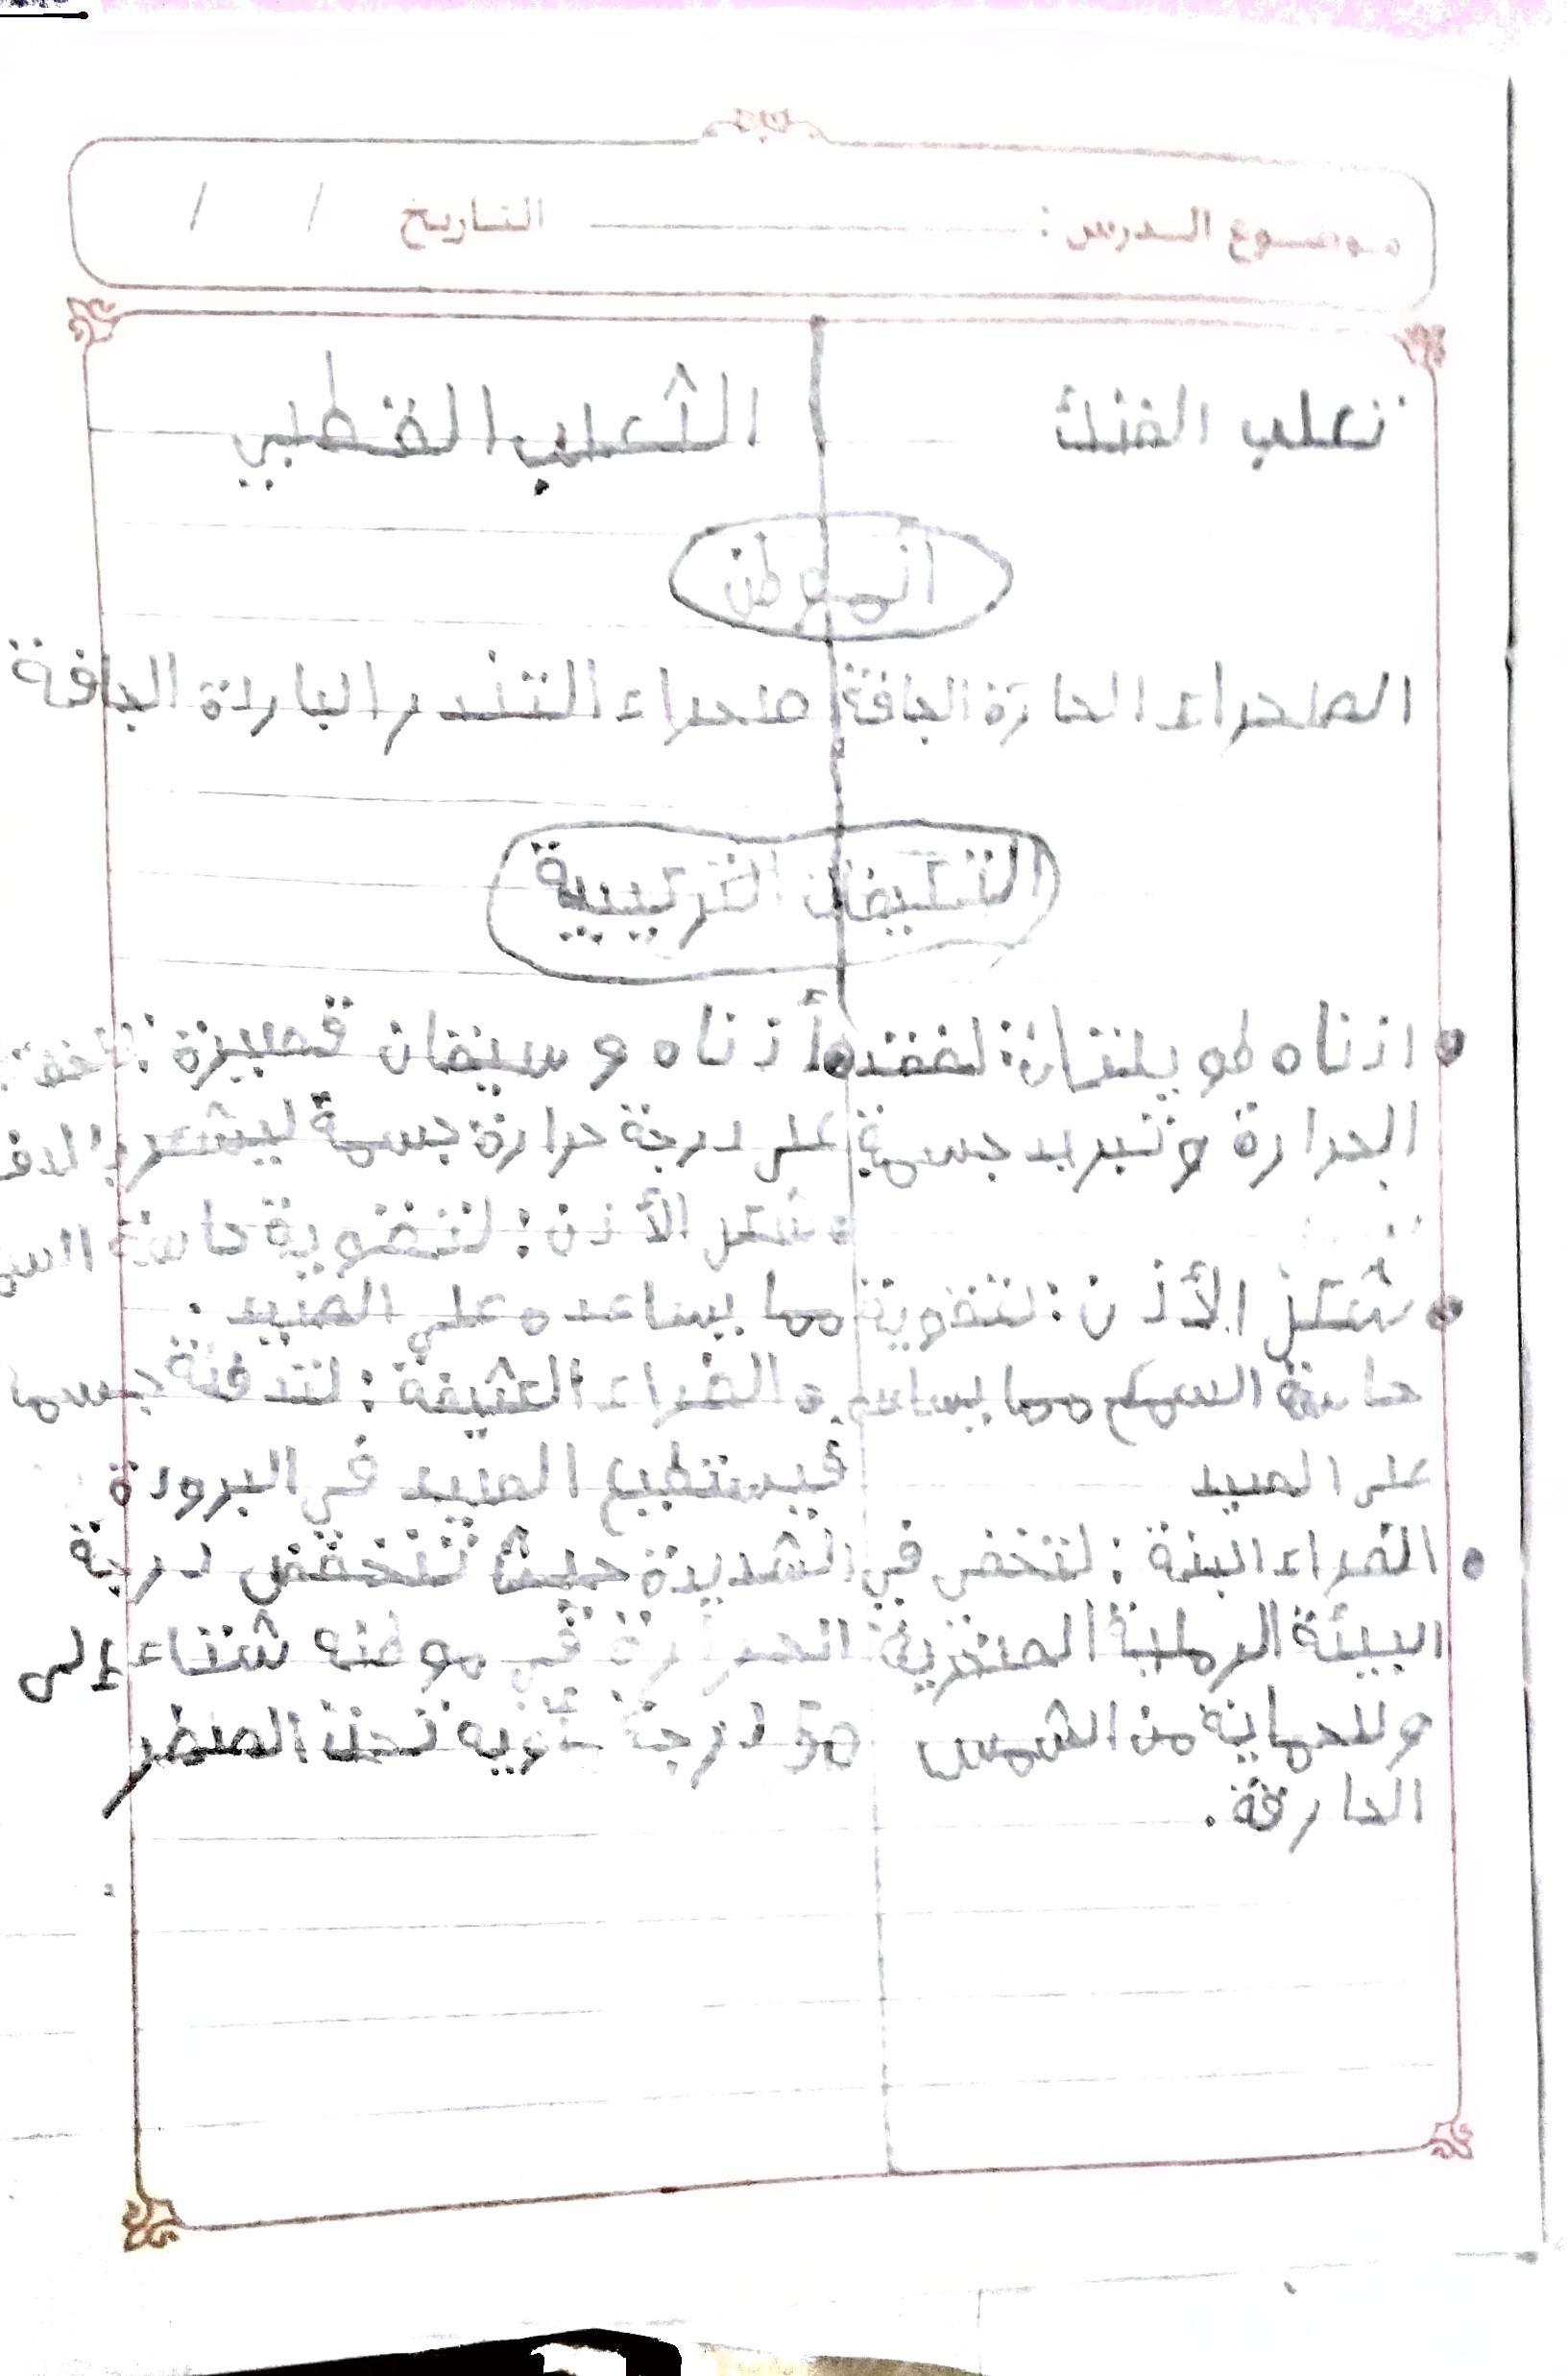 موضوع الدرس : التاريخ / /
ثعلب الفنك الثعلب القطبي
الموطن
الصحراء الحارة الجافة صحراء التندرا الباردة الجافة
التكيفات التركيبية
• اذناه طويلتان: لفقد • أذناه وسيقان قصيرة:
الحرارة وتبريد جسمة على درجة حرارة جسمة ليشعر
• شعر الأذن: لتقوية حاسة
• شعر الأذن: لتقوية مما يساعده على الصيد.
حاسة السمع مما يساعد • الفراء الكثيفة: لتدفئة جسمه
على الصيد فيستطيع الصيد في البرودة
• الفراء البنية: لتخفى في الشديدة حيث تنخفض درجة
البيئة الرملية الصخرية الحرارة في موطنه شتاء إلى
وللحماية من الشمس 50 درجة مئويه تحت الصفر
الحارقة.